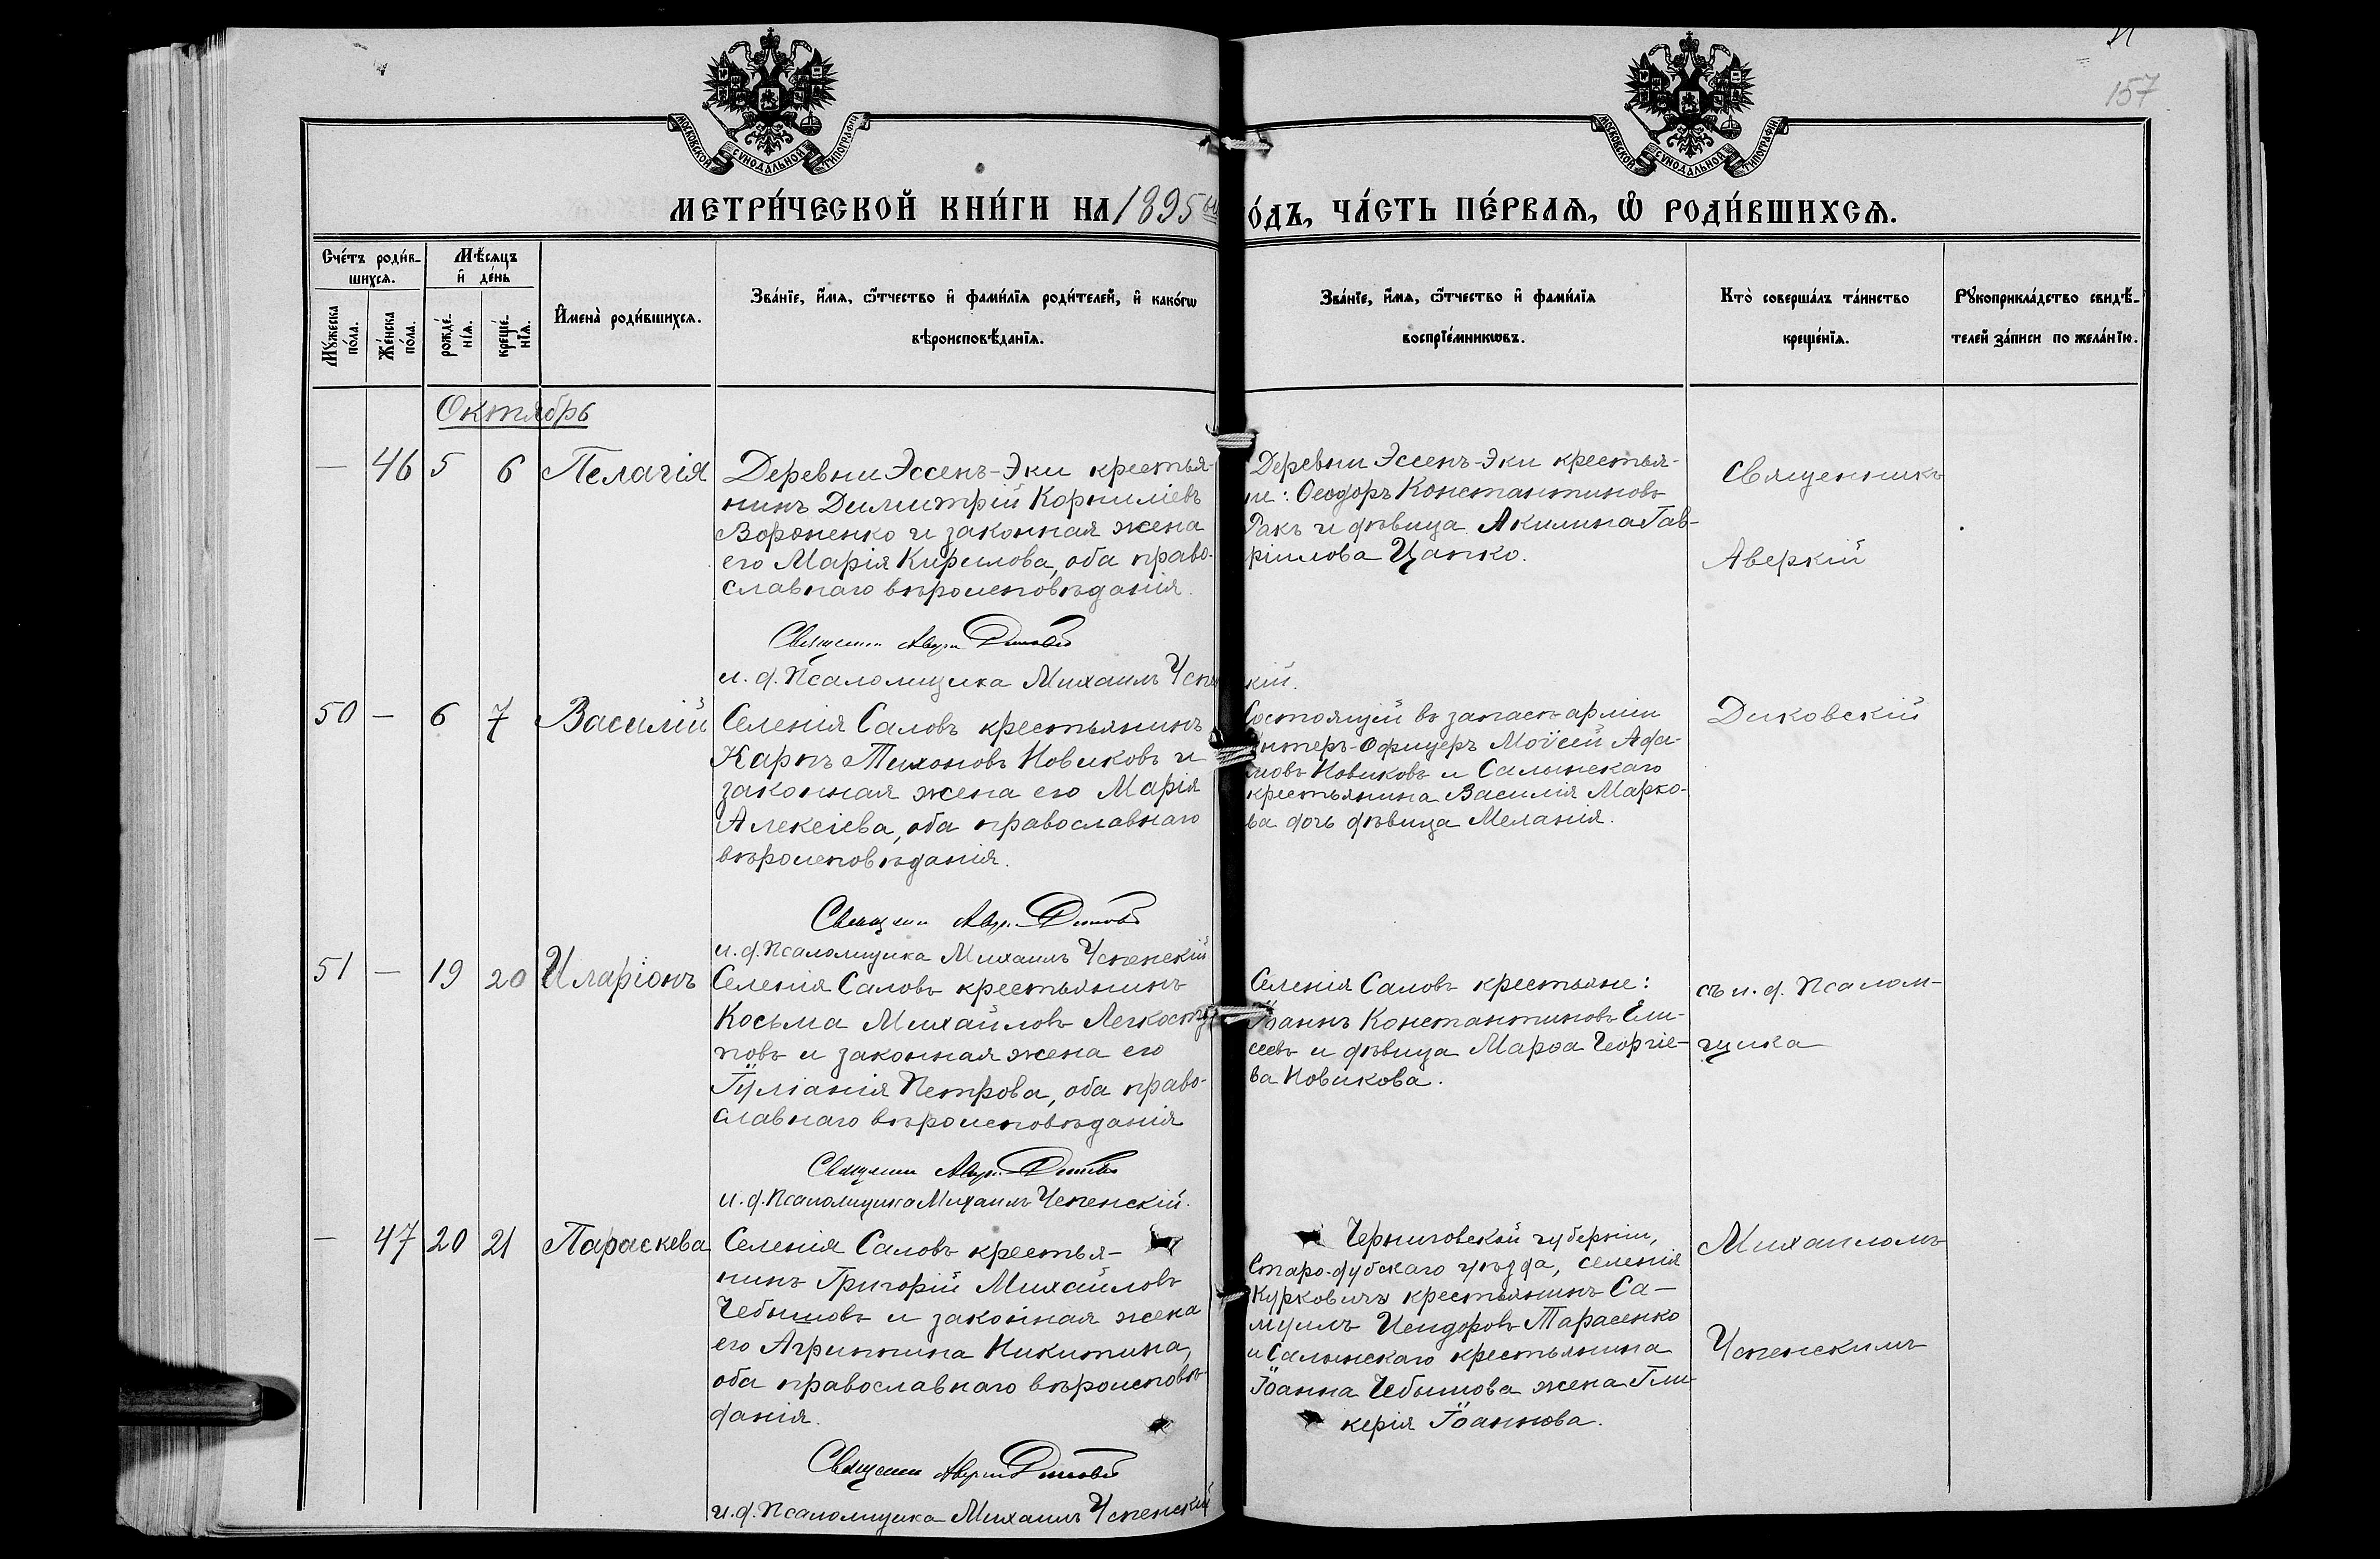 157
МОСКОВСКОЙ СУНОДАЛЬНОЙ ТИПОГРАФІИ
МОСКОВСКОЙ СУНОДАЛЬНОЙ ТИПОГРАФІИ
МЕТРИ́ЧЕСКОЙ КНИ́ГИ НА 1895
О́ДЪ, ЧА́СТЬ ПЕ́РВАѦ, Ѡ҆ РОДИ́ВШИХСѦ.
Сче́тъ роди́в-
шихсѧ.
Мꙋ́жеска
по́ла.
Же́нска
по́ла.
Мѣ́сѧцъ
и҆ де́нь
рожде́-
нїѧ.
креще́-
нїѧ.
И҆мена̀ роди́вшихсѧ.
Зва́нїе, и҆́мѧ, ѻ҆́тчество и҆ фами́лїѧ роди́телей, и҆ како́гѡ
вѣроисповѣ́данїѧ.
Зва́нїе, и҆́мѧ, ѻ҆́тчество и҆ фами́лїѧ
воспрїе́мникѡвъ.
Кто̀ соверша́лъ та́инство
креще́нїѧ.
Рꙋкоприкла́дство свидѣ́-
телей за́писи по жела́нїю.
Октябрь
— 46 5 6 Пелагія
Деревни Эссенъ-Эки крестья-
нинъ Димитрій Корниліевъ
Вороненко и законная жена
его Марія Кирилова, оба право-
славнаго вѣроисповѣданія.
Священн Авер Диковскій
и. д. Псаломщика Михаилъ Успенскій.
Деревни Эссенъ-Эки крестья-
не: Ѳеодоръ Константиновъ
Ракъ и дѣвица Акилина Гав-
ріилова Цапко.
Священникъ
Аверкій
50 — 6 7 Василій
Селенія Саловъ крестьянинъ
Карпъ Тихоновъ Новиковъ и
законная жена его Марія
Алексіева, оба православнаго
вѣроисповѣданія.
Священн Авер. Диковскій
и. д. Псаломщика Михаилъ Успенскій
Состоящій въ запасѣ арміи
Унтеръ-Офицеръ Моѵсей Афа-
новъ Новиковъ и Салынскаго
крестьянина Василія Марко-
ва дочь дѣвица Меланія.
Диковскій
51 — 19 20 Иларіонъ
Селенія Саловъ крестьянинъ
Косьма Михайловъ Легкосту-
повъ и законная жена его
Іуліанія Петрова, оба право-
славнаго вѣроисповѣданія
Священн Авер. Диковскій
и. д. Псаломщика Михаилъ Успенскій.
Селенія Саловъ крестьяне:
Іоаннъ Константиновъ Ели-
сеевъ и дѣвица Марѳа Георгіе-
ва Новикова.
съ и. д. Псалом-
щика
— 47 20 21 Параскева
Селенія Саловъ крестья-
нинъ Григорій Михайловъ
Чебышовъ и законная жена
его Агриппина Никитина,
оба православнаго вѣроисповѣ-
данія.
Священн Аверкій Диковскій
и. д. Псаломщика Михаилъ Успенскій
Черниговской губерніи,
Старо-дубскаго уѣзда, селенія
Курковичъ крестьянинъ Са-
муилъ Исидоровъ Тарасенко
и Салынскаго крестьянина
Іоанна Чебышова жена Гли-
керія Іоаннова.
Михаиломъ
Успенскимъ